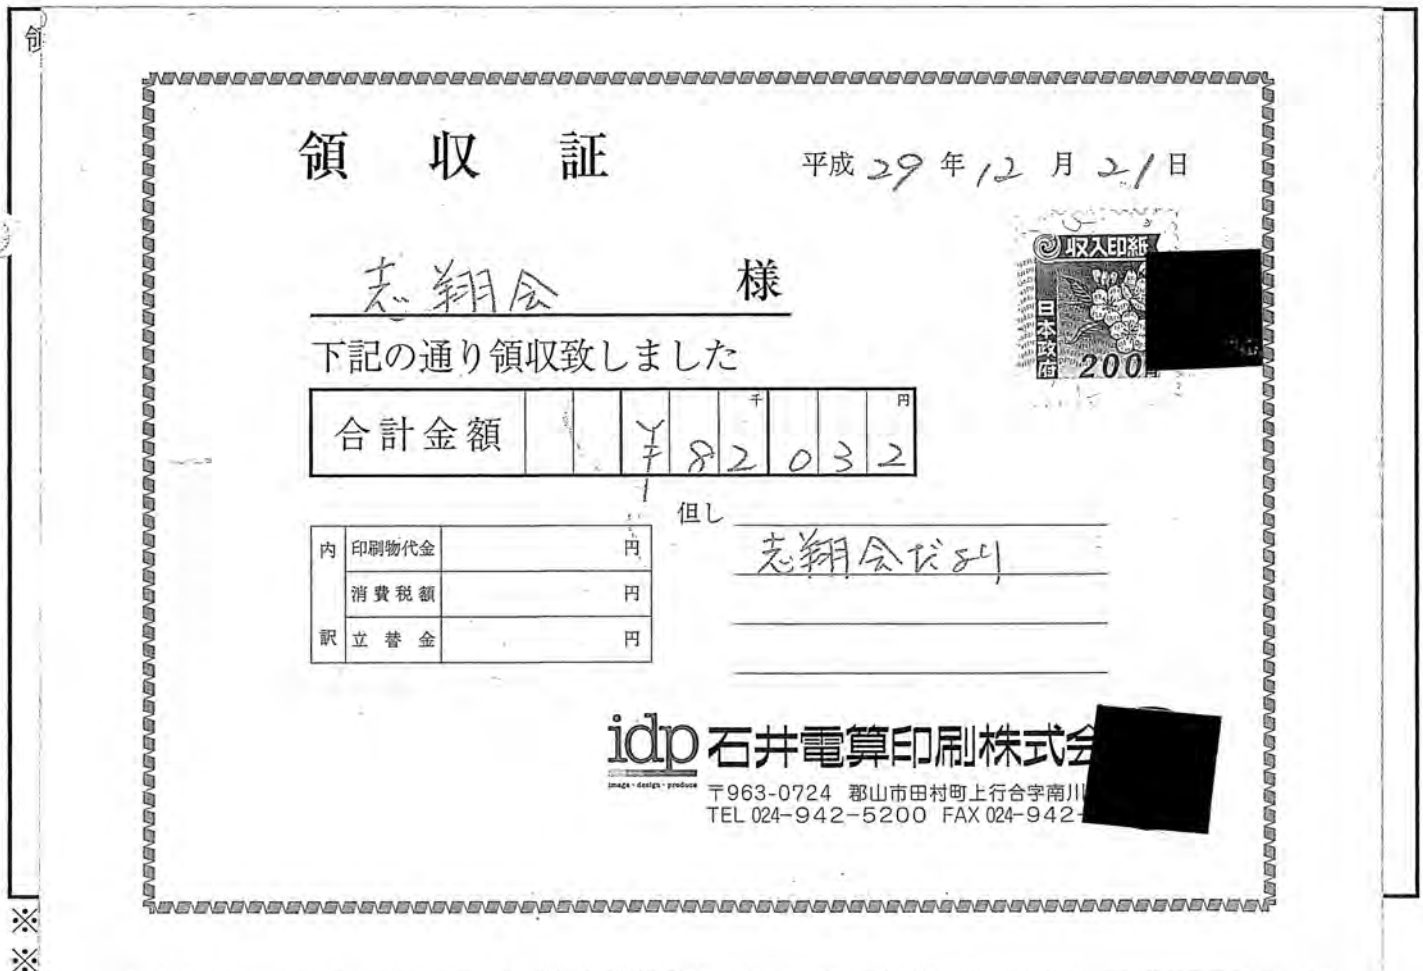 領
領収証
平成29年12月21日
収入印紙
日本政府
200
志翔会 様
下記の通り領収致しました
合計金額 ¥82032
千 円
但し
志翔会だより
内訳
印刷物代金 円
消費税額 円
立替金 円
idp 石井電算印刷株式会
image・design・produce
〒963-0724 郡山市田村町上行合字南川
TEL 024-942-5200 FAX 024-942-
※
※